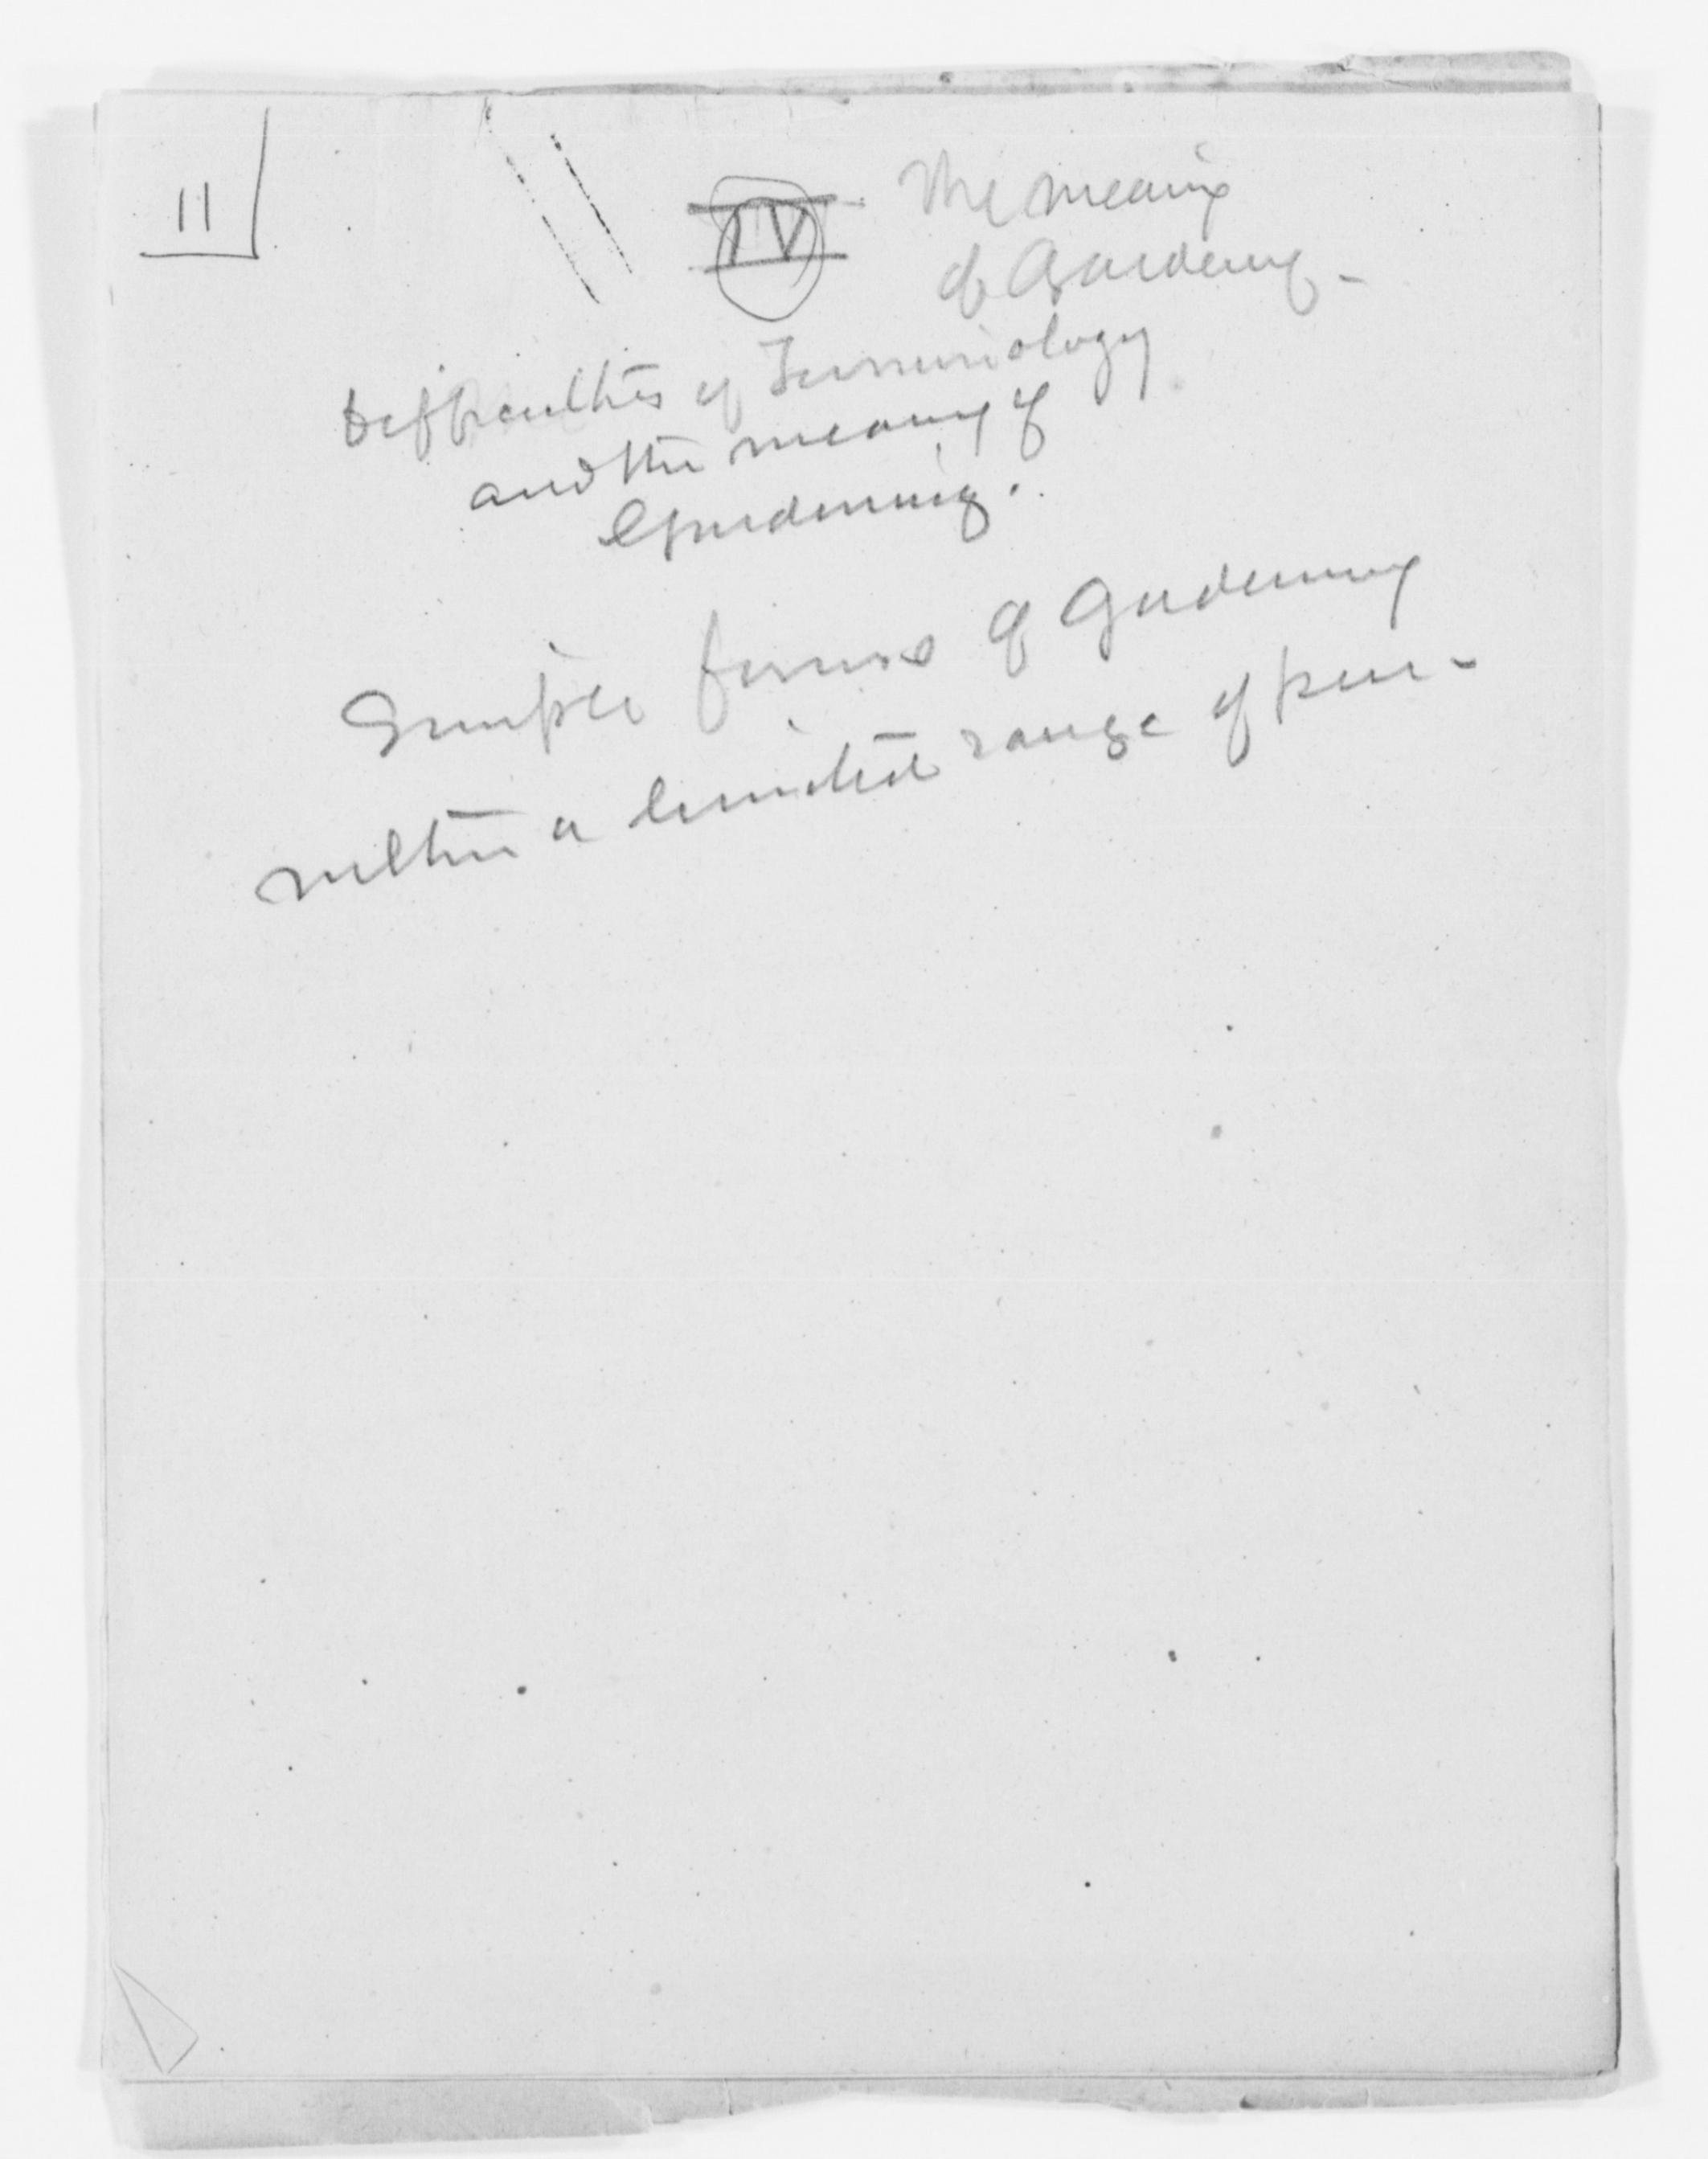 11
IV The meaning
of Gardening -
Difficulties of Terminology
and the meaning of
Gardening.
Simple forms of Gardening
within a limited range of